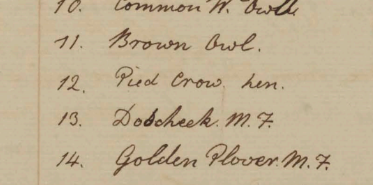 10. Common W. Owl
11. Brown Owl.
12. Pied Crow hen.
13. Dobcheek. M. F.
14. Golden Plover. M. F.